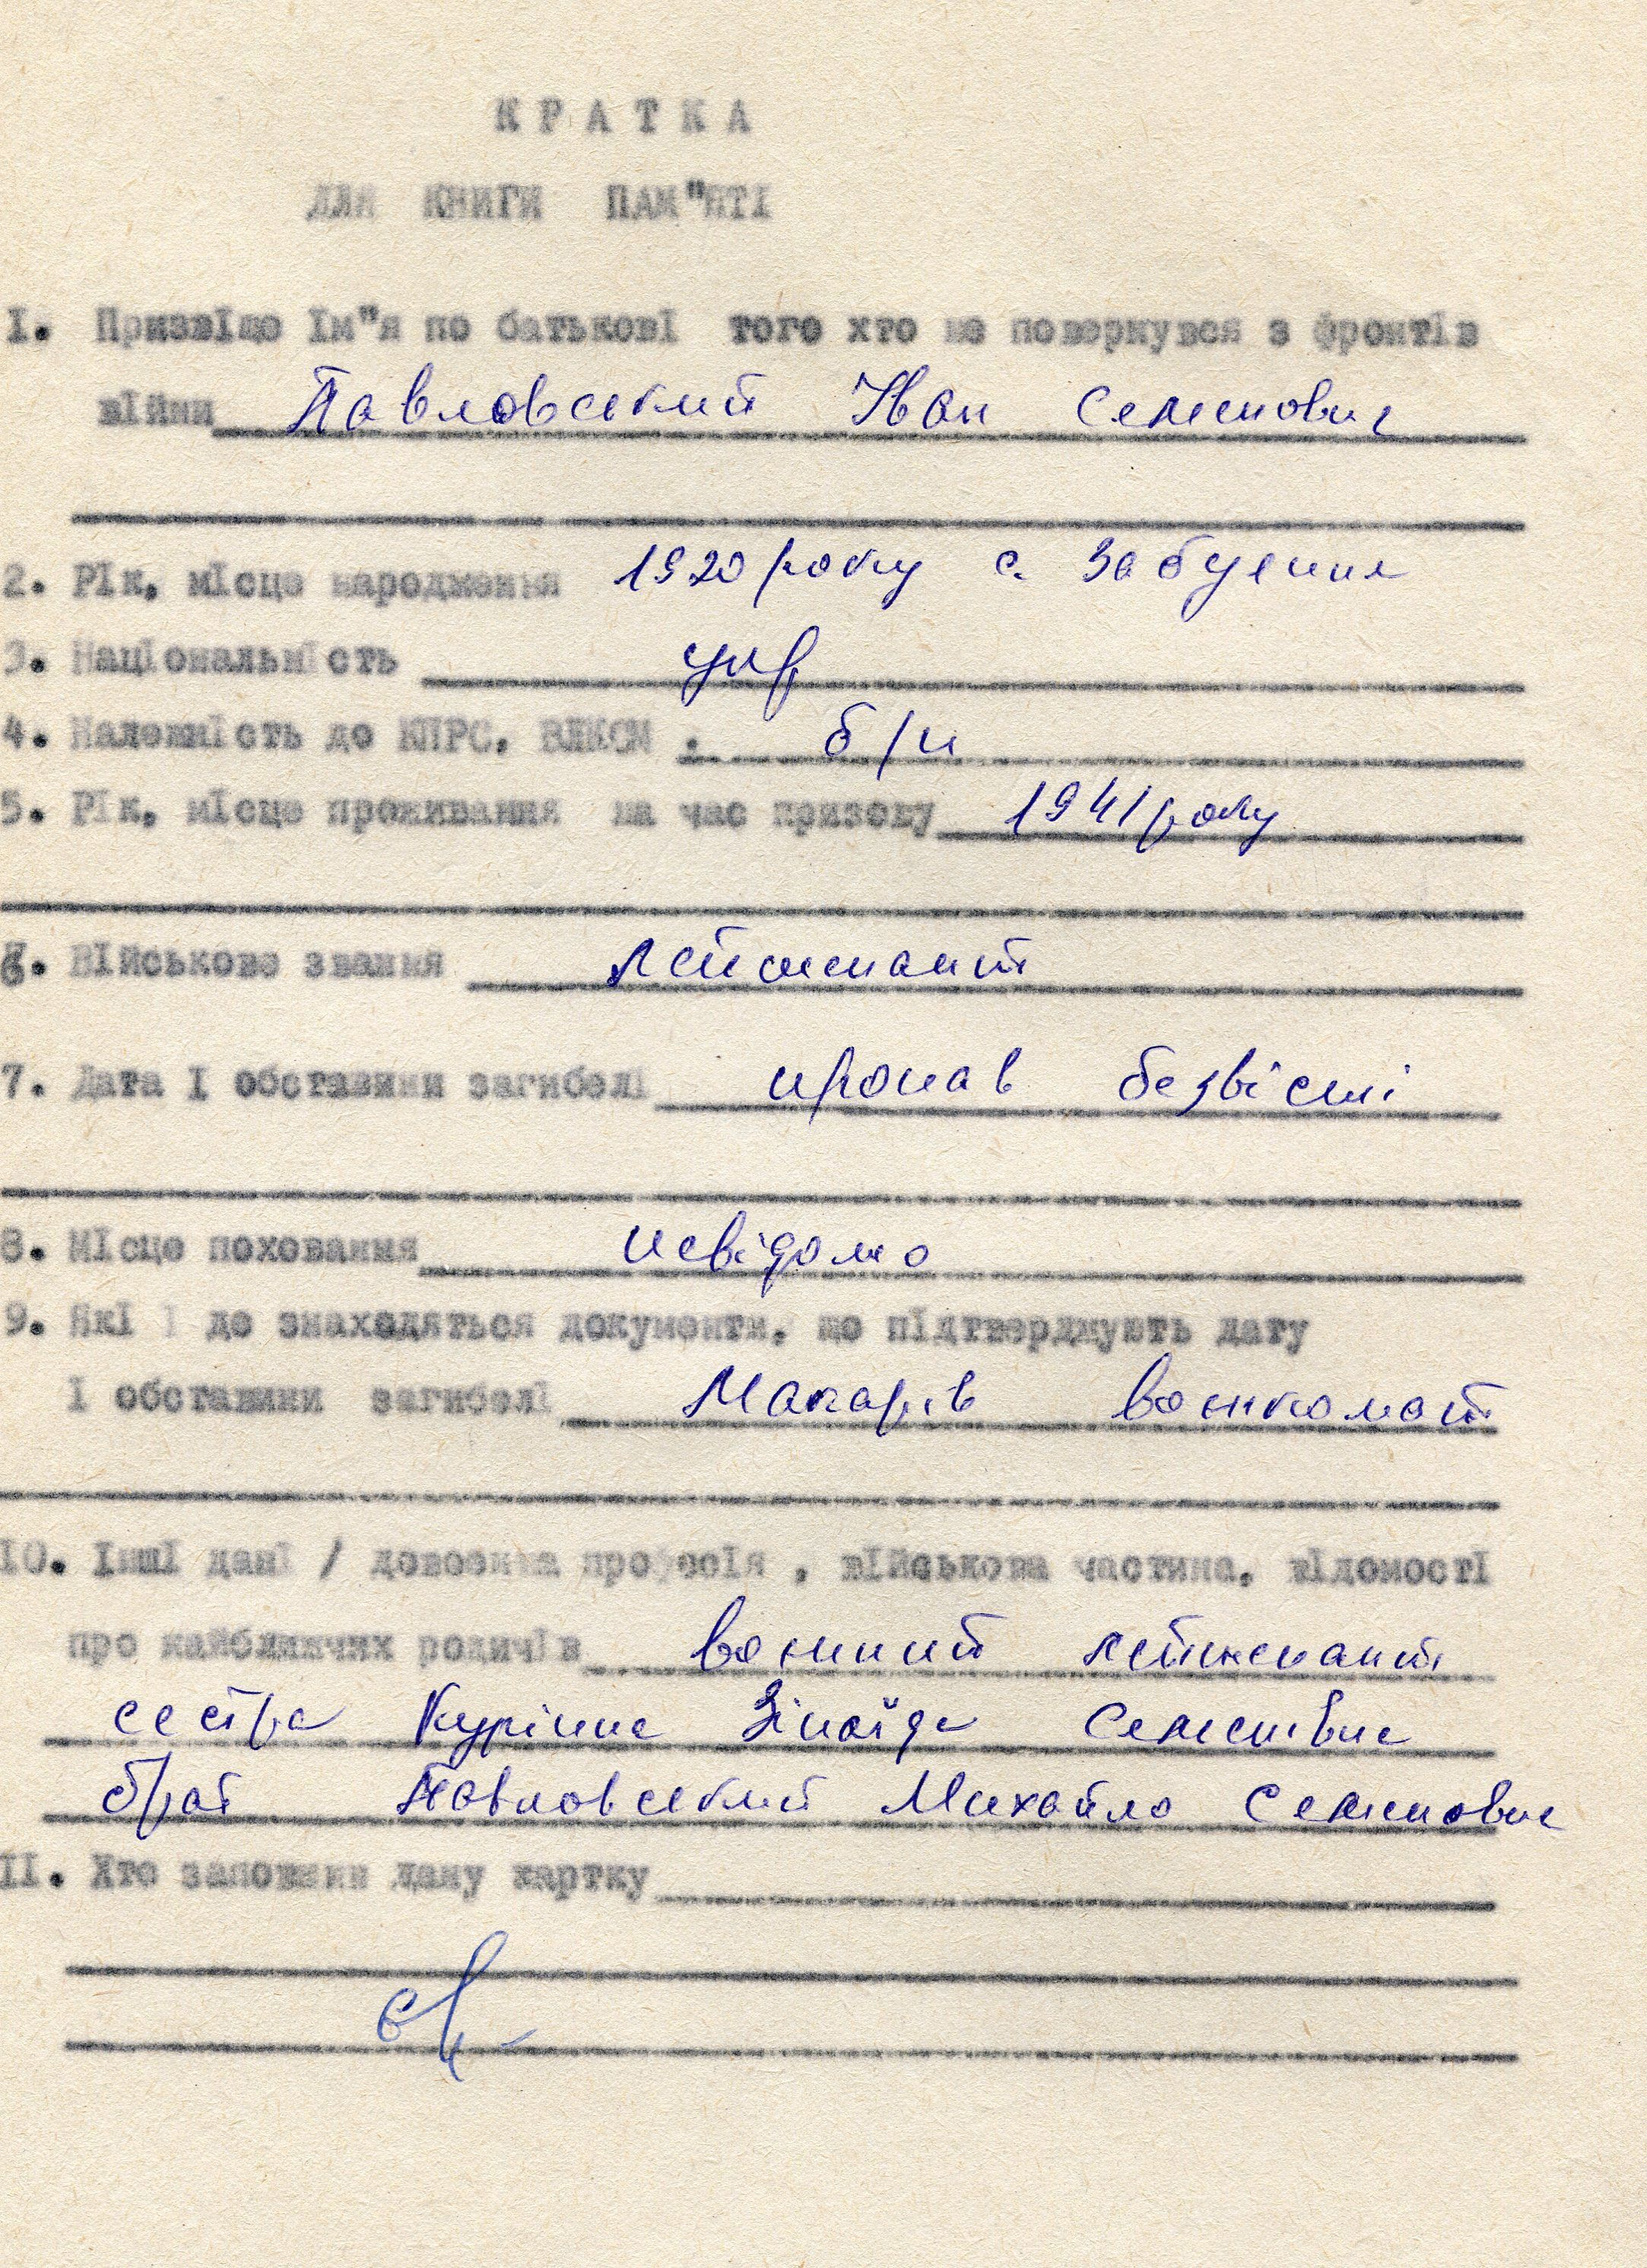 КРАТКА
ДЛЯ КНИГИ ПАМ"ЯТІ
І. Призвіще Ім"я по батькові того хто не повернувся з фронтів
війни Павловський Іван Семенович
2. Рік, місце народження 1920 року с. Забуяння
3. Національність укр
4. Належність до КПРС, ВЛКСМ . б/п
5. Рік, місце проживання на час призову 1941 року
6. Військове звання лейтенант
7. Дата і обставини загибелі пропав безвісті
8. Місце поховання невідомо
9. Які і де знаходяться документи, що підтверджують дату
і обставини загибелі Макарів воєнкомат
ІО. Інші дані / довоєнна професія , військова частина, відомості
про найближчих родичів воєнний лейтенант
сестра Курінна Зінаїда Семенівна
брат Павловський Михайло Семенович
ІІ. Хто заповнив дану картку